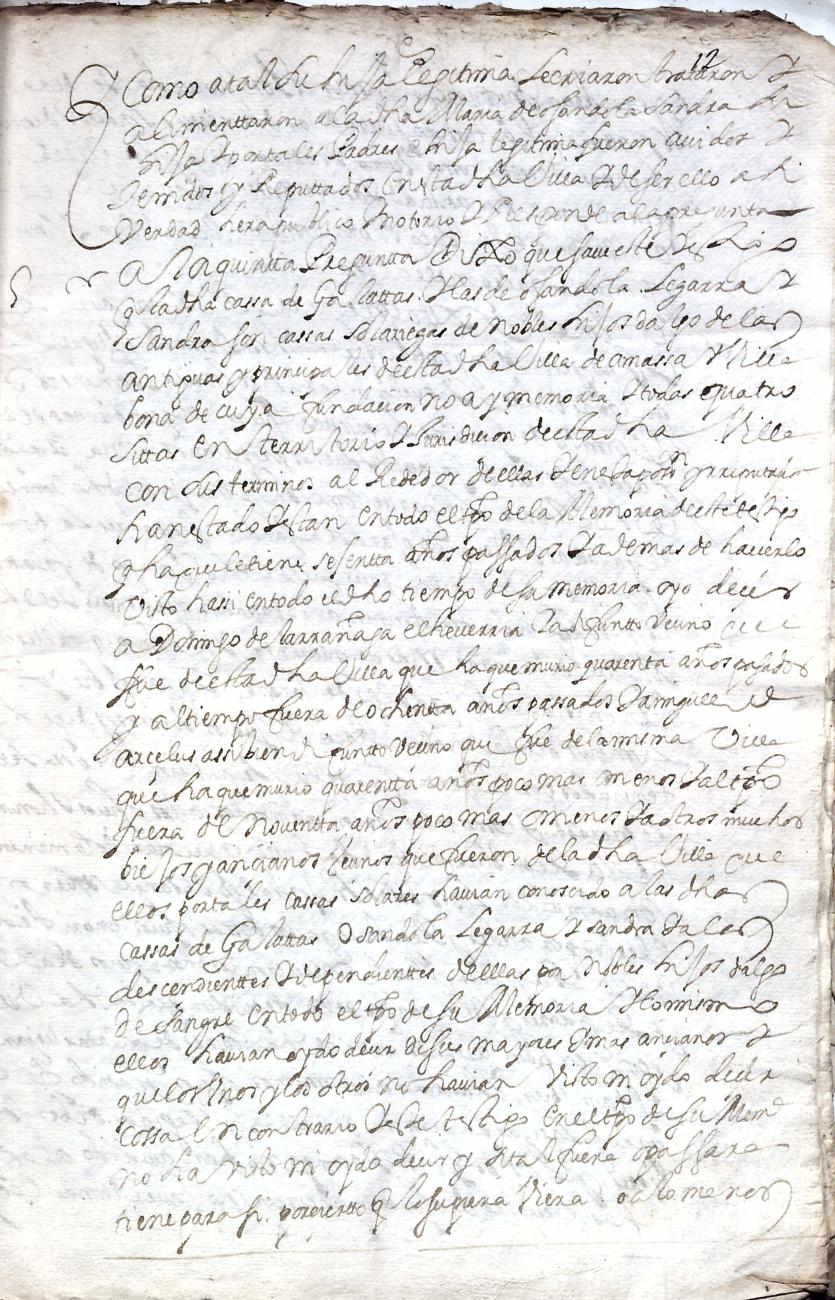 12
Como a tal su hija legitima le criaron trataron y
alimenttaron a la dha Maria de osandola Sandra su
hija y por tales Padres e hija legitima fueron avidos y
tenidos y Reputtados en esta dha Villa y de ser ello assi
Verdad hera publico notorio y Responde a la pregunta
5 A la quintta Pregunta Dixo que save este testigo
q la dha cassa de Galattas y las de osandola Legarra y
Sandra son cassas solariegas de nobles hijos dalgo de las
antiguas y principales de esta dha Villa de amassa y Villa
bona de cuya fundacion no ay memoria y todas quatro
sittas en territorio y Jurisdicion de esta dha Villa
con sus terminos al Rededor de ellas y en essa
han estado y estan en todo el tpo de la Memoria de este testigo
q ha que le tiene sesentta años passados y ademas de haverlo
visto hassi en todo el dho tiempo de su memoria oyo decir
a Domingo de larrañaga echeverria ya difuntto vecino que
fue de esta dha Villa que ha que murio quarenta años pasados
y al tiempo fuera de ochentta años passados y a miguel de
arcelus assi bien difuntto vecino que fue de la misma Villa
que ha que murio quarentta años poco mas menos y al tpo
fuera de noventta años poco mas o menos y a otros muchos
biejos y ancianos vecinos que fueron de la dha Villa que
ellos por tales cassas solares havian conoscido a las dhas
cassas de Galattas Osandola Legarra y Sandra y a los
descendienttes y dependientes de ellas por nobles hijos dalgo
de sangre en todo el tpo de su Memoria y lo mismo
ellos havian oydo decir de sus mayores e mas ancianos y
que los Unos y los otros no havian Visto ni oydo decir
cossa en contrario y este testigo en el tpo de su Mema
no ha visto ni oydo decir y si tal fuera o passara
tiene para si por ciertto q lo supiera Viera o a lo menos